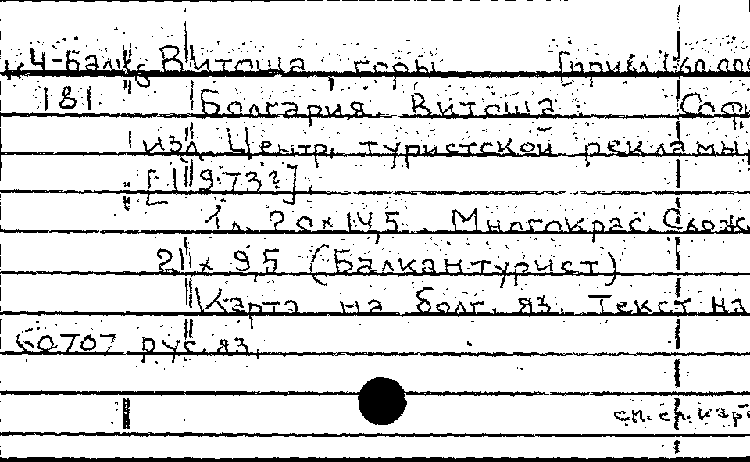 к4-Балк Витоша, горы [прибл. 1:60.000
181 Болгария. Витоша. Соф
изд. Центр. туристской рекламы,
[1973?].
1 л. 20×14,5. Многокрас. Слож
21 × 9,5 (Балкантурист)
Карта на болг. яз. Текст на
60707 рус. яз.
сп. ск. кар